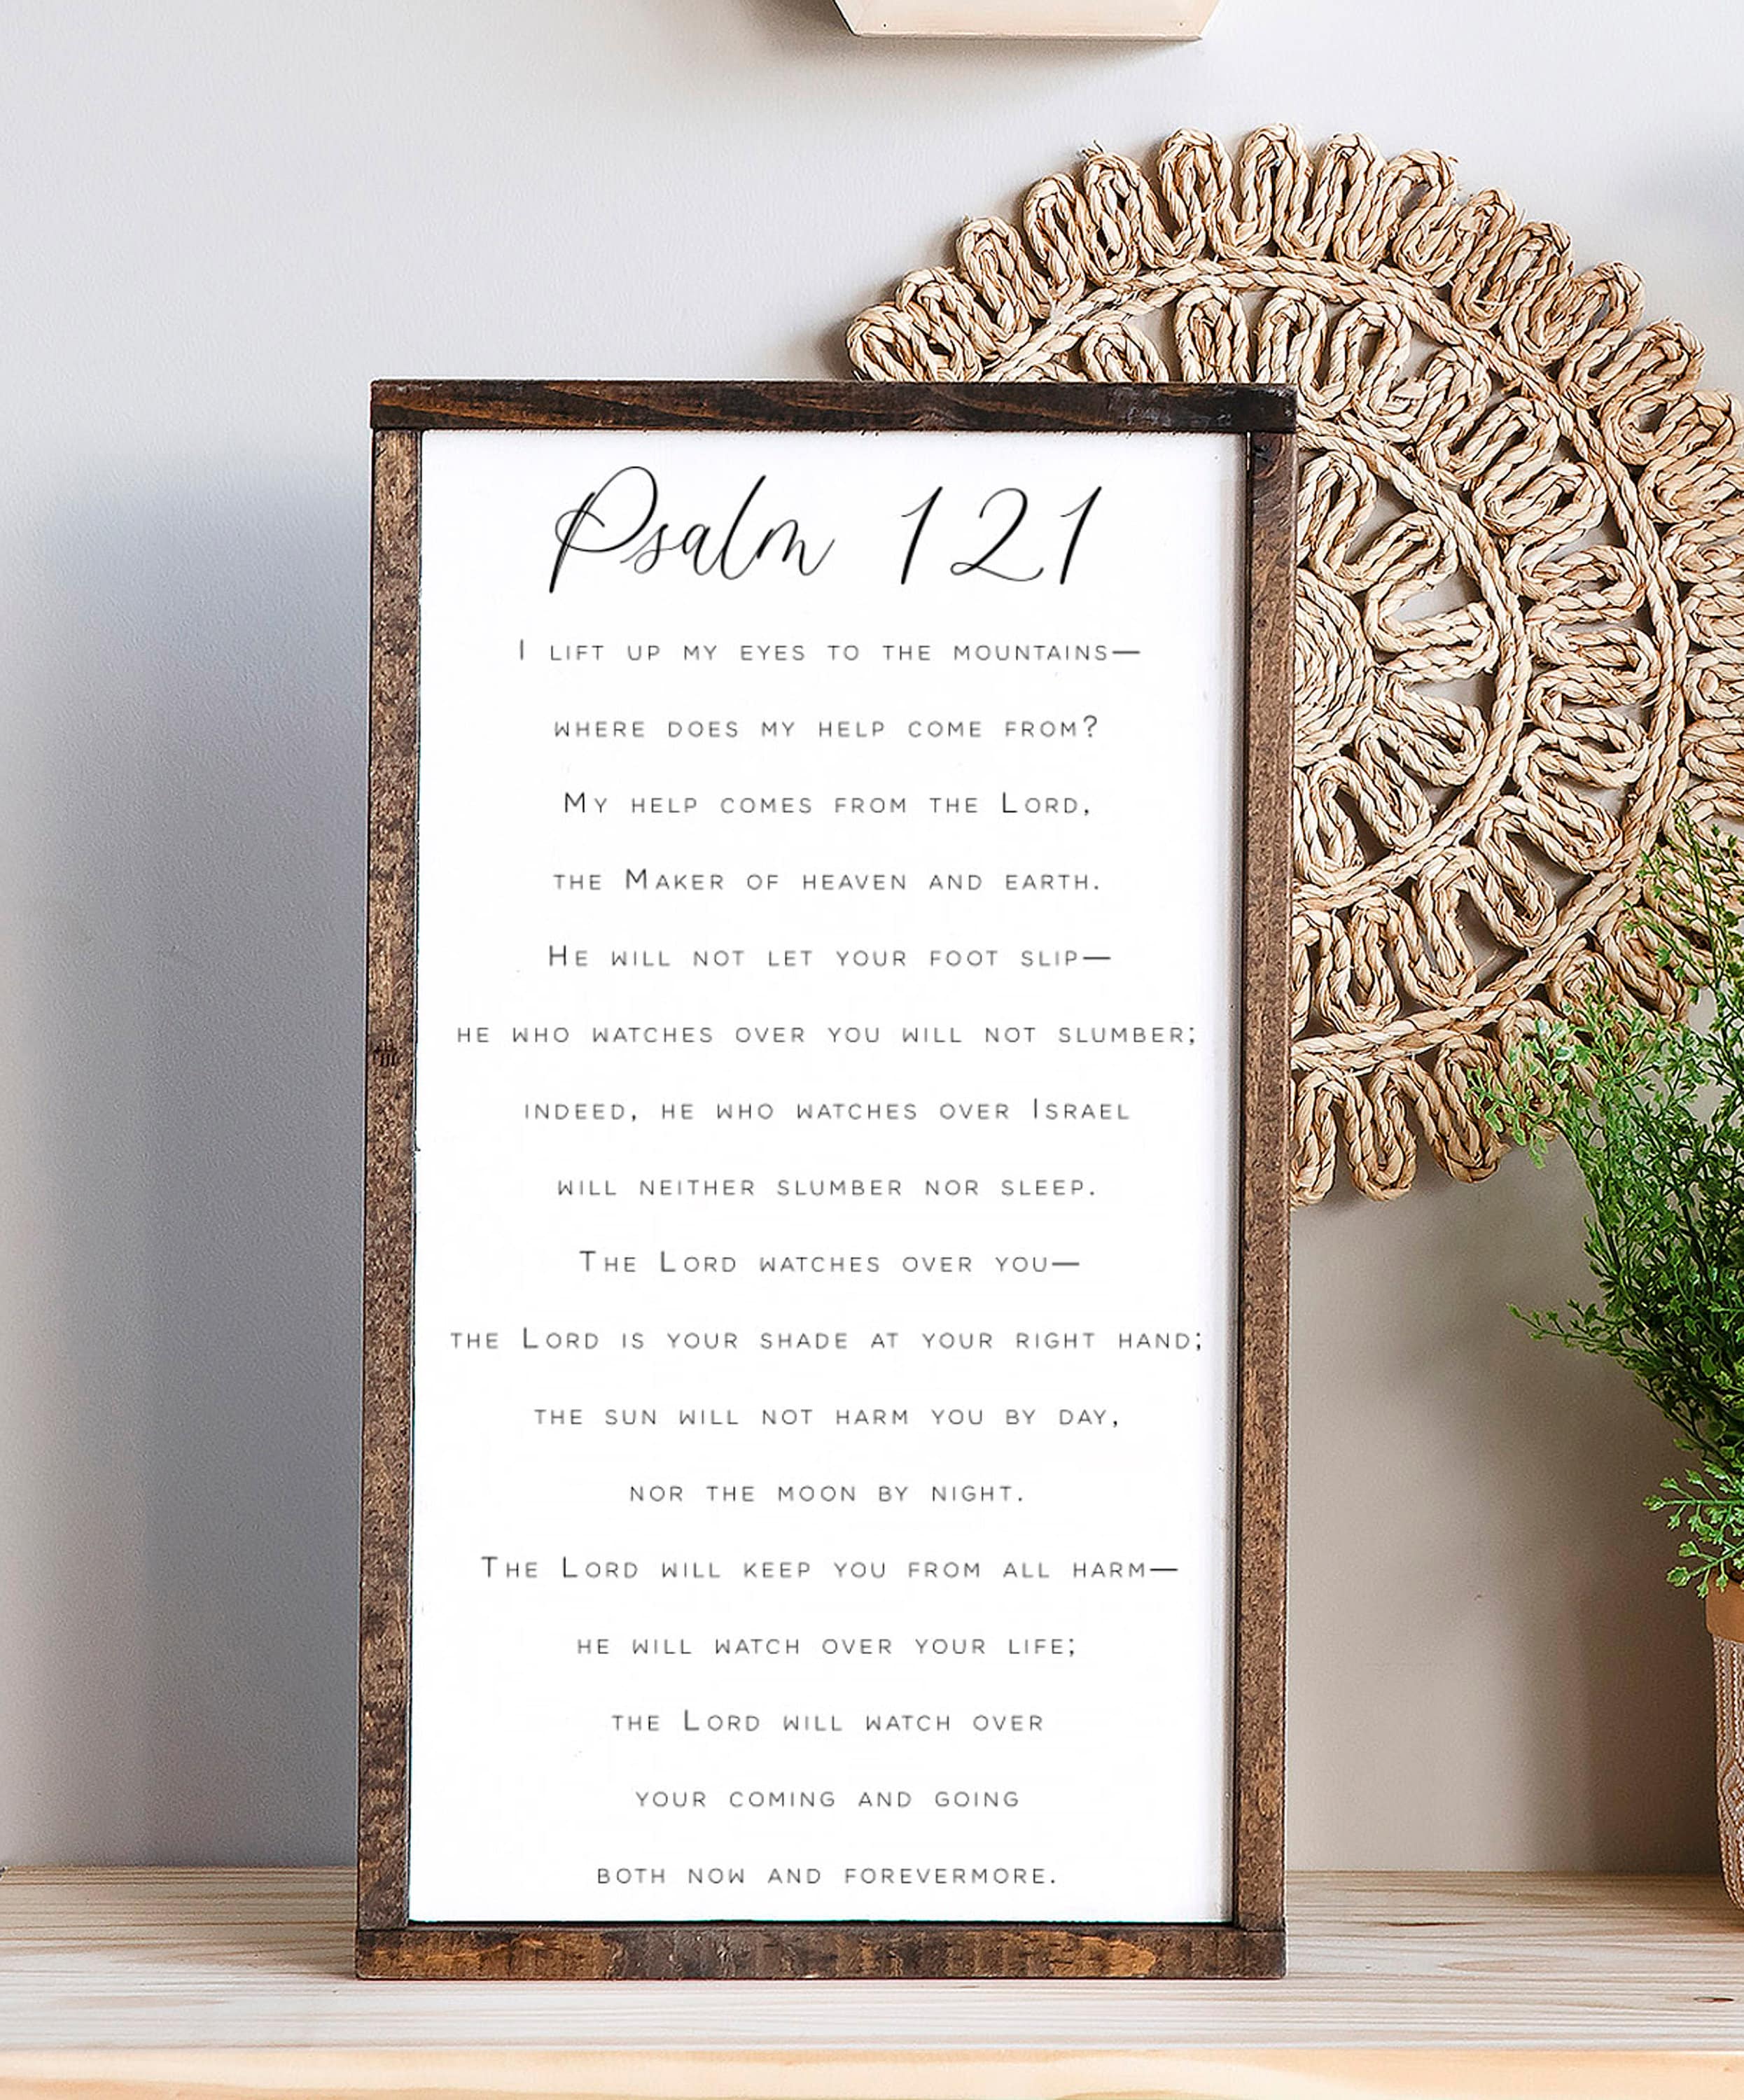 Psalm 121
I lift up my eyes to the mountains—
where does my help come from?
My help comes from the Lord,
the Maker of heaven and earth.
He will not let your foot slip—
he who watches over you will not slumber;
indeed, he who watches over Israel
will neither slumber nor sleep.
The Lord watches over you—
the Lord is your shade at your right hand;
the sun will not harm you by day,
nor the moon by night.
The Lord will keep you from all harm—
he will watch over your life;
the Lord will watch over
your coming and going
both now and forevermore.